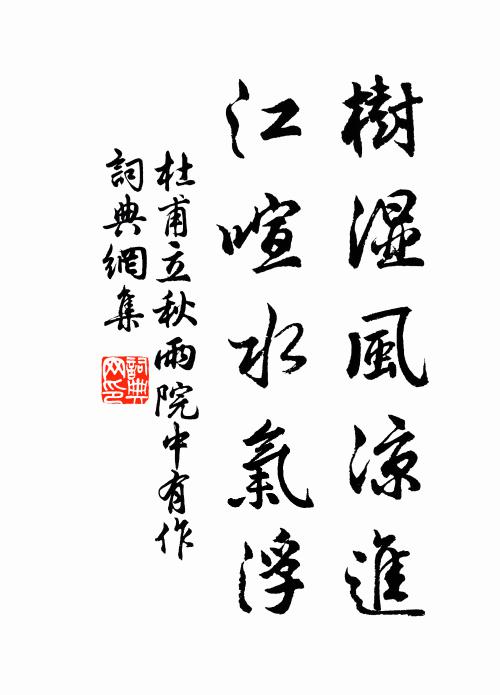 樹湿風凉進
江喧水氣浮
杜甫立秋雨院中有作
詞典網集
詞典
网印